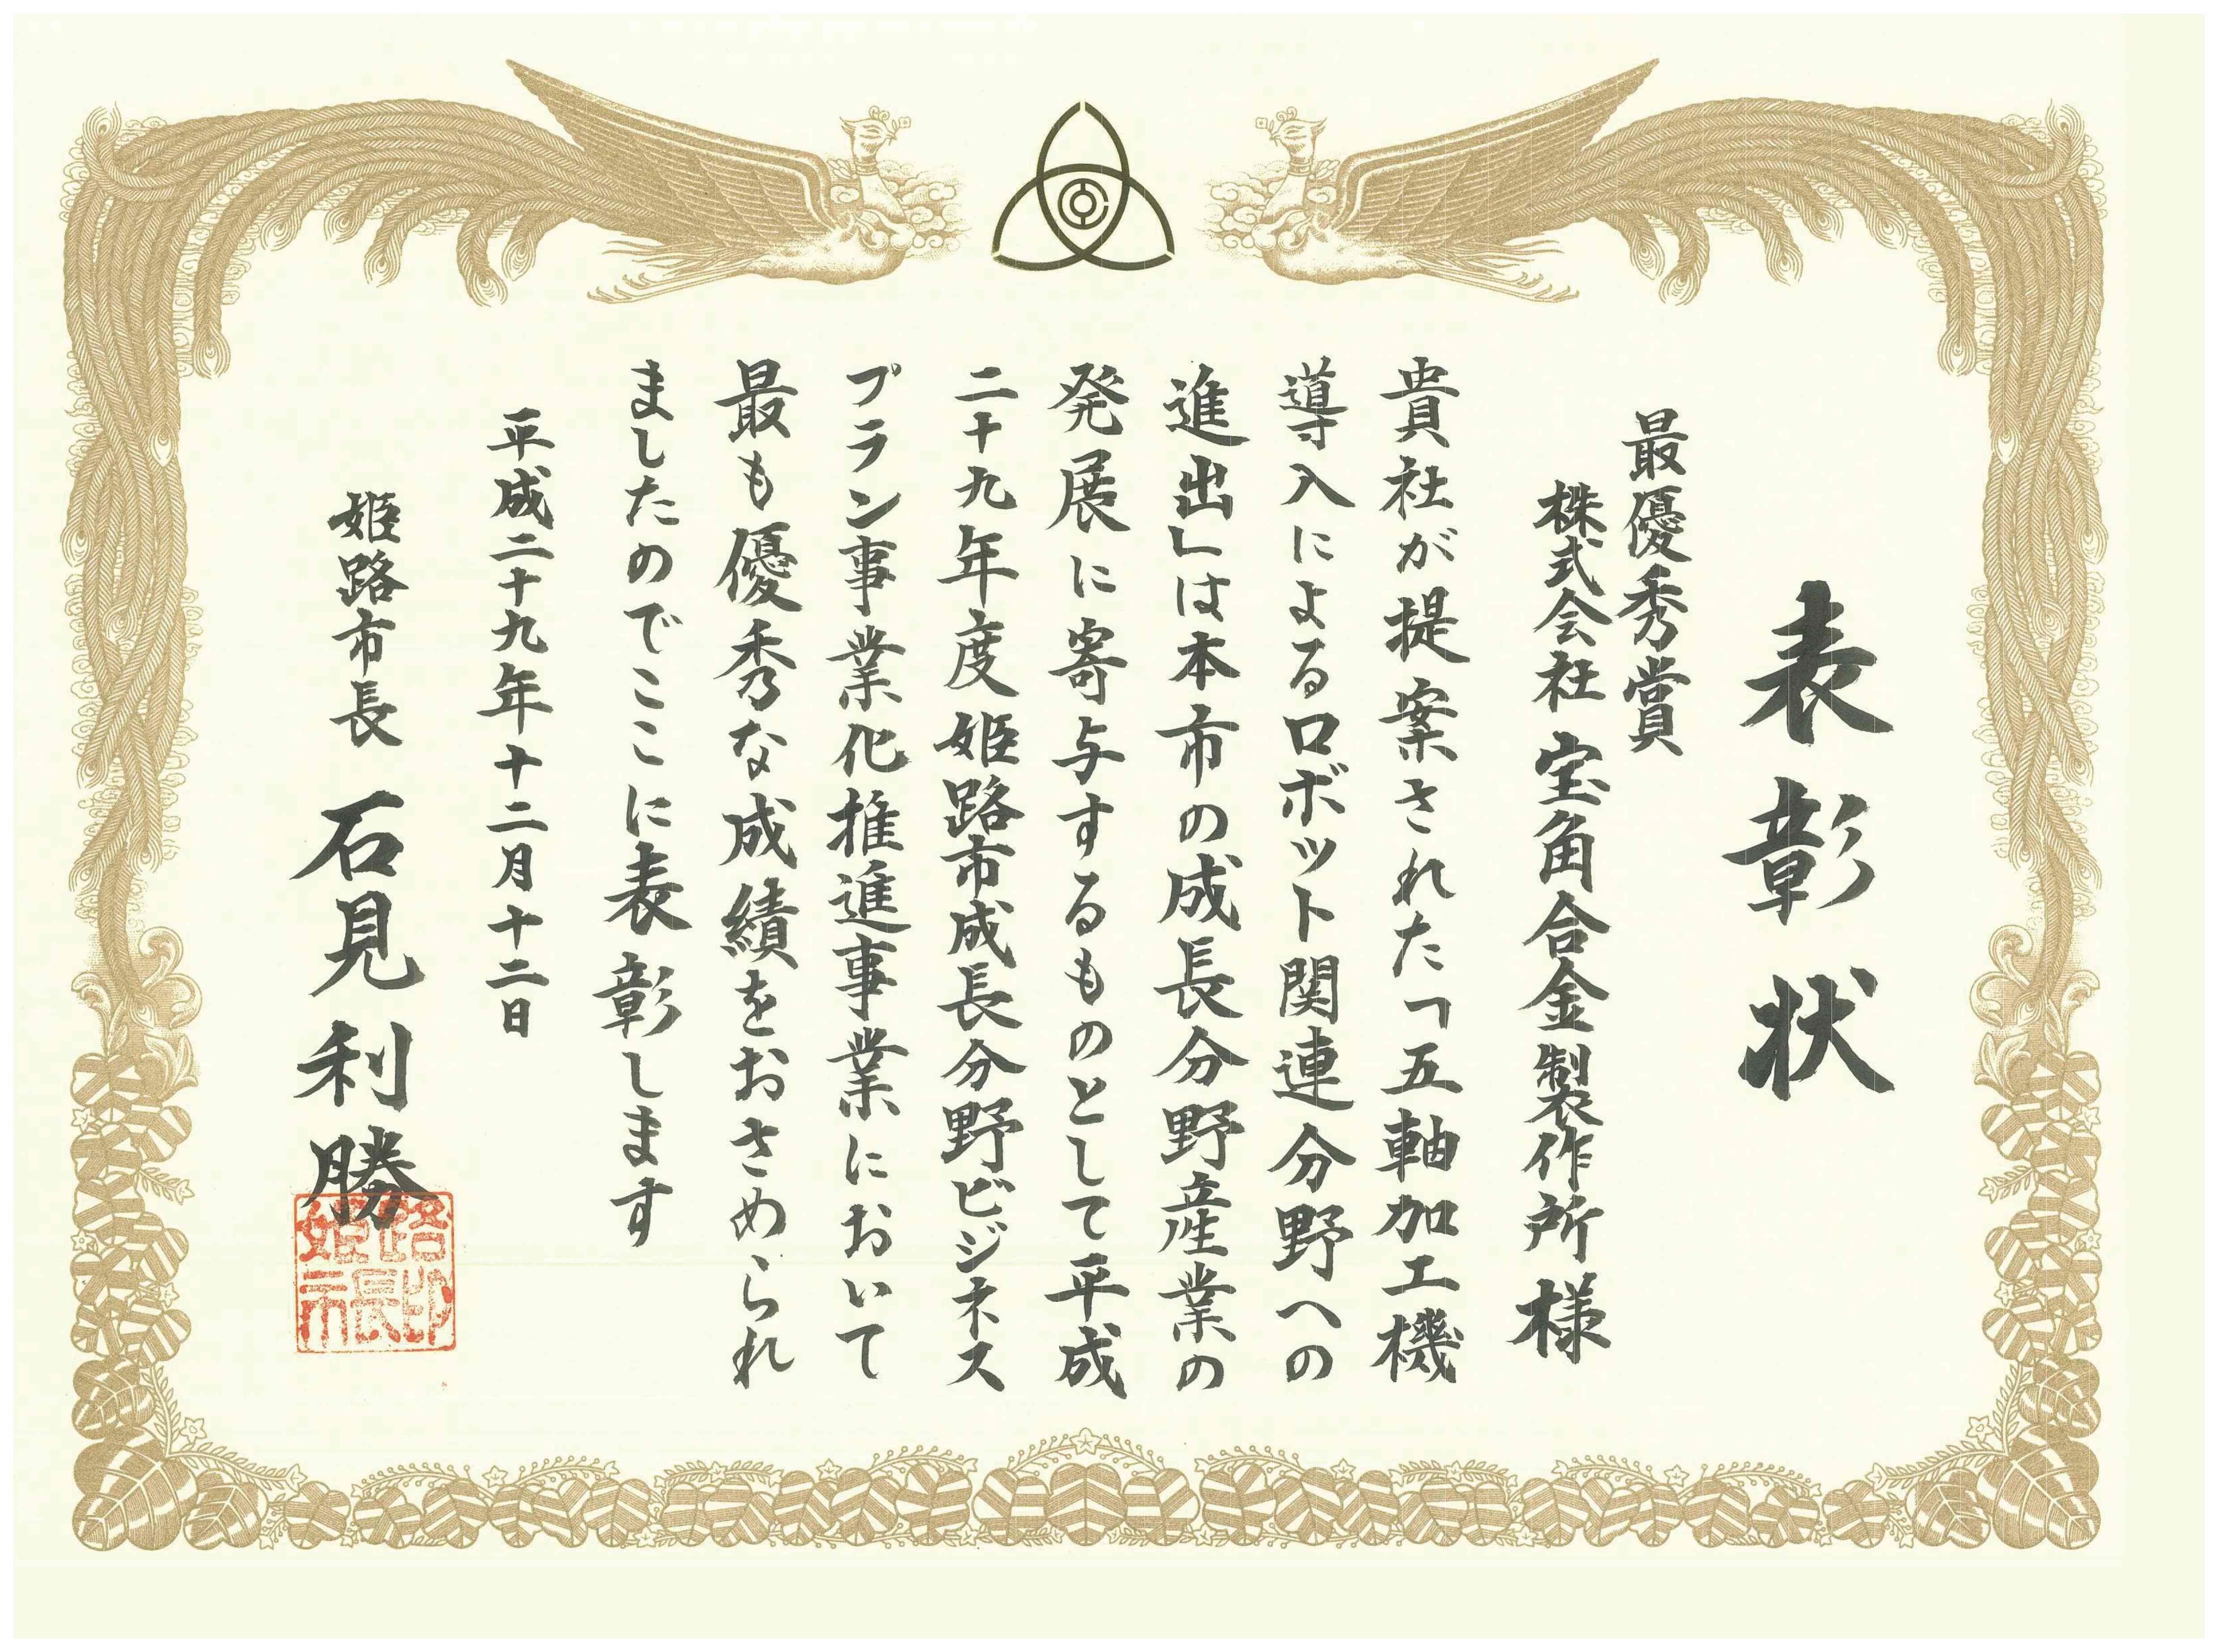 表彰状
最優秀賞
株式会社 宝角合金製作所 様
貴社が提案された「五軸加工機
導入によるロボット関連分野への
進出」は本市の成長分野産業の
発展に寄与するものとして平成
二十九年度姫路市成長分野ビジネス
プラン事業化推進事業において
最も優秀な成績をおさめられ
ましたのでここに表彰します
平成二十九年十二月十二日
姫路市長 石見利勝
姫路市長印